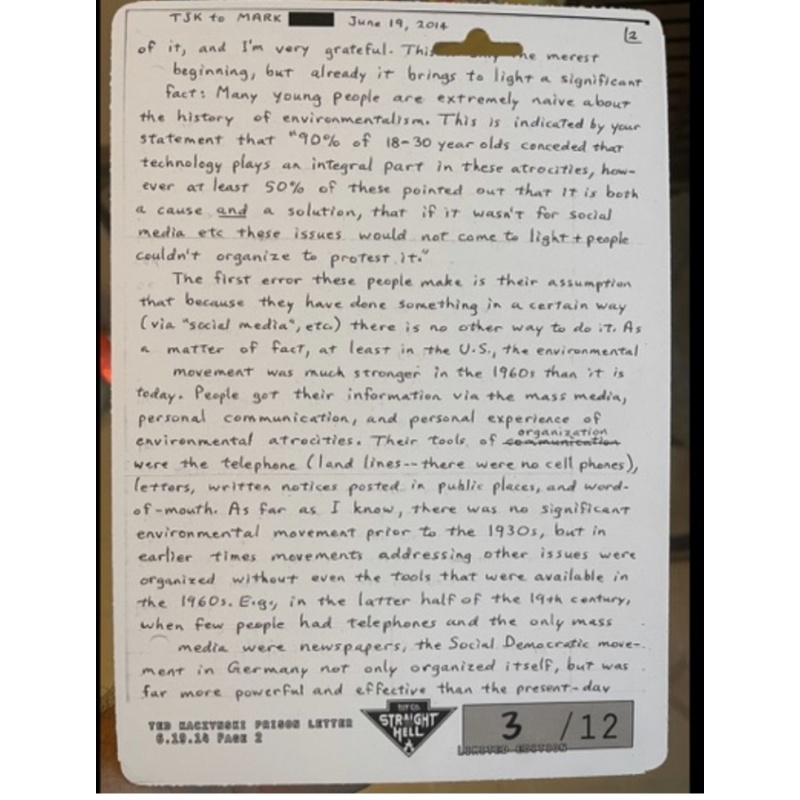 TJK to MARK June 19, 2014
2
of it, and I'm very grateful. This the merest
beginning, but already it brings to light a significant
fact: Many young people are extremely naive about
the history of environmentalism. This is indicated by your
statement that "90% of 18-30 year olds conceded that
technology plays an integral part in these atrocities, how-
ever at least 50% of these pointed out that it is both
a cause and a solution, that if it wasn't for social
media etc these issues would not come to light + people
couldn't organize to protest it."
The first error these people make is their assumption
that because they have done something in a certain way
(via "social media", etc.) there is no other way to do it. As
a matter of fact, at least in the U.S., the environmental
movement was much stronger in the 1960s than it is
today. People got their information via the mass media,
personal communication, and personal experience of
organization
environmental atrocities. Their tools of communication
were the telephone (land lines--there were no cell phones),
letters, written notices posted in public places, and word-
of-mouth. As far as I know, there was no significant
environmental movement prior to the 1930s, but in
earlier times movements addressing other issues were
organized without even the tools that were available in
the 1960s. E.g., in the latter half of the 19th century,
when few people had telephones and the only mass
media were newspapers, the Social Democratic move-
ment in Germany not only organized itself, but was
far more powerful and effective than the present-day
TED KACZYNSKI PRISON LETTER
6.19.14 PAGE 2
STRAIGHT
HELL
3 /12
LIMITED EDITION